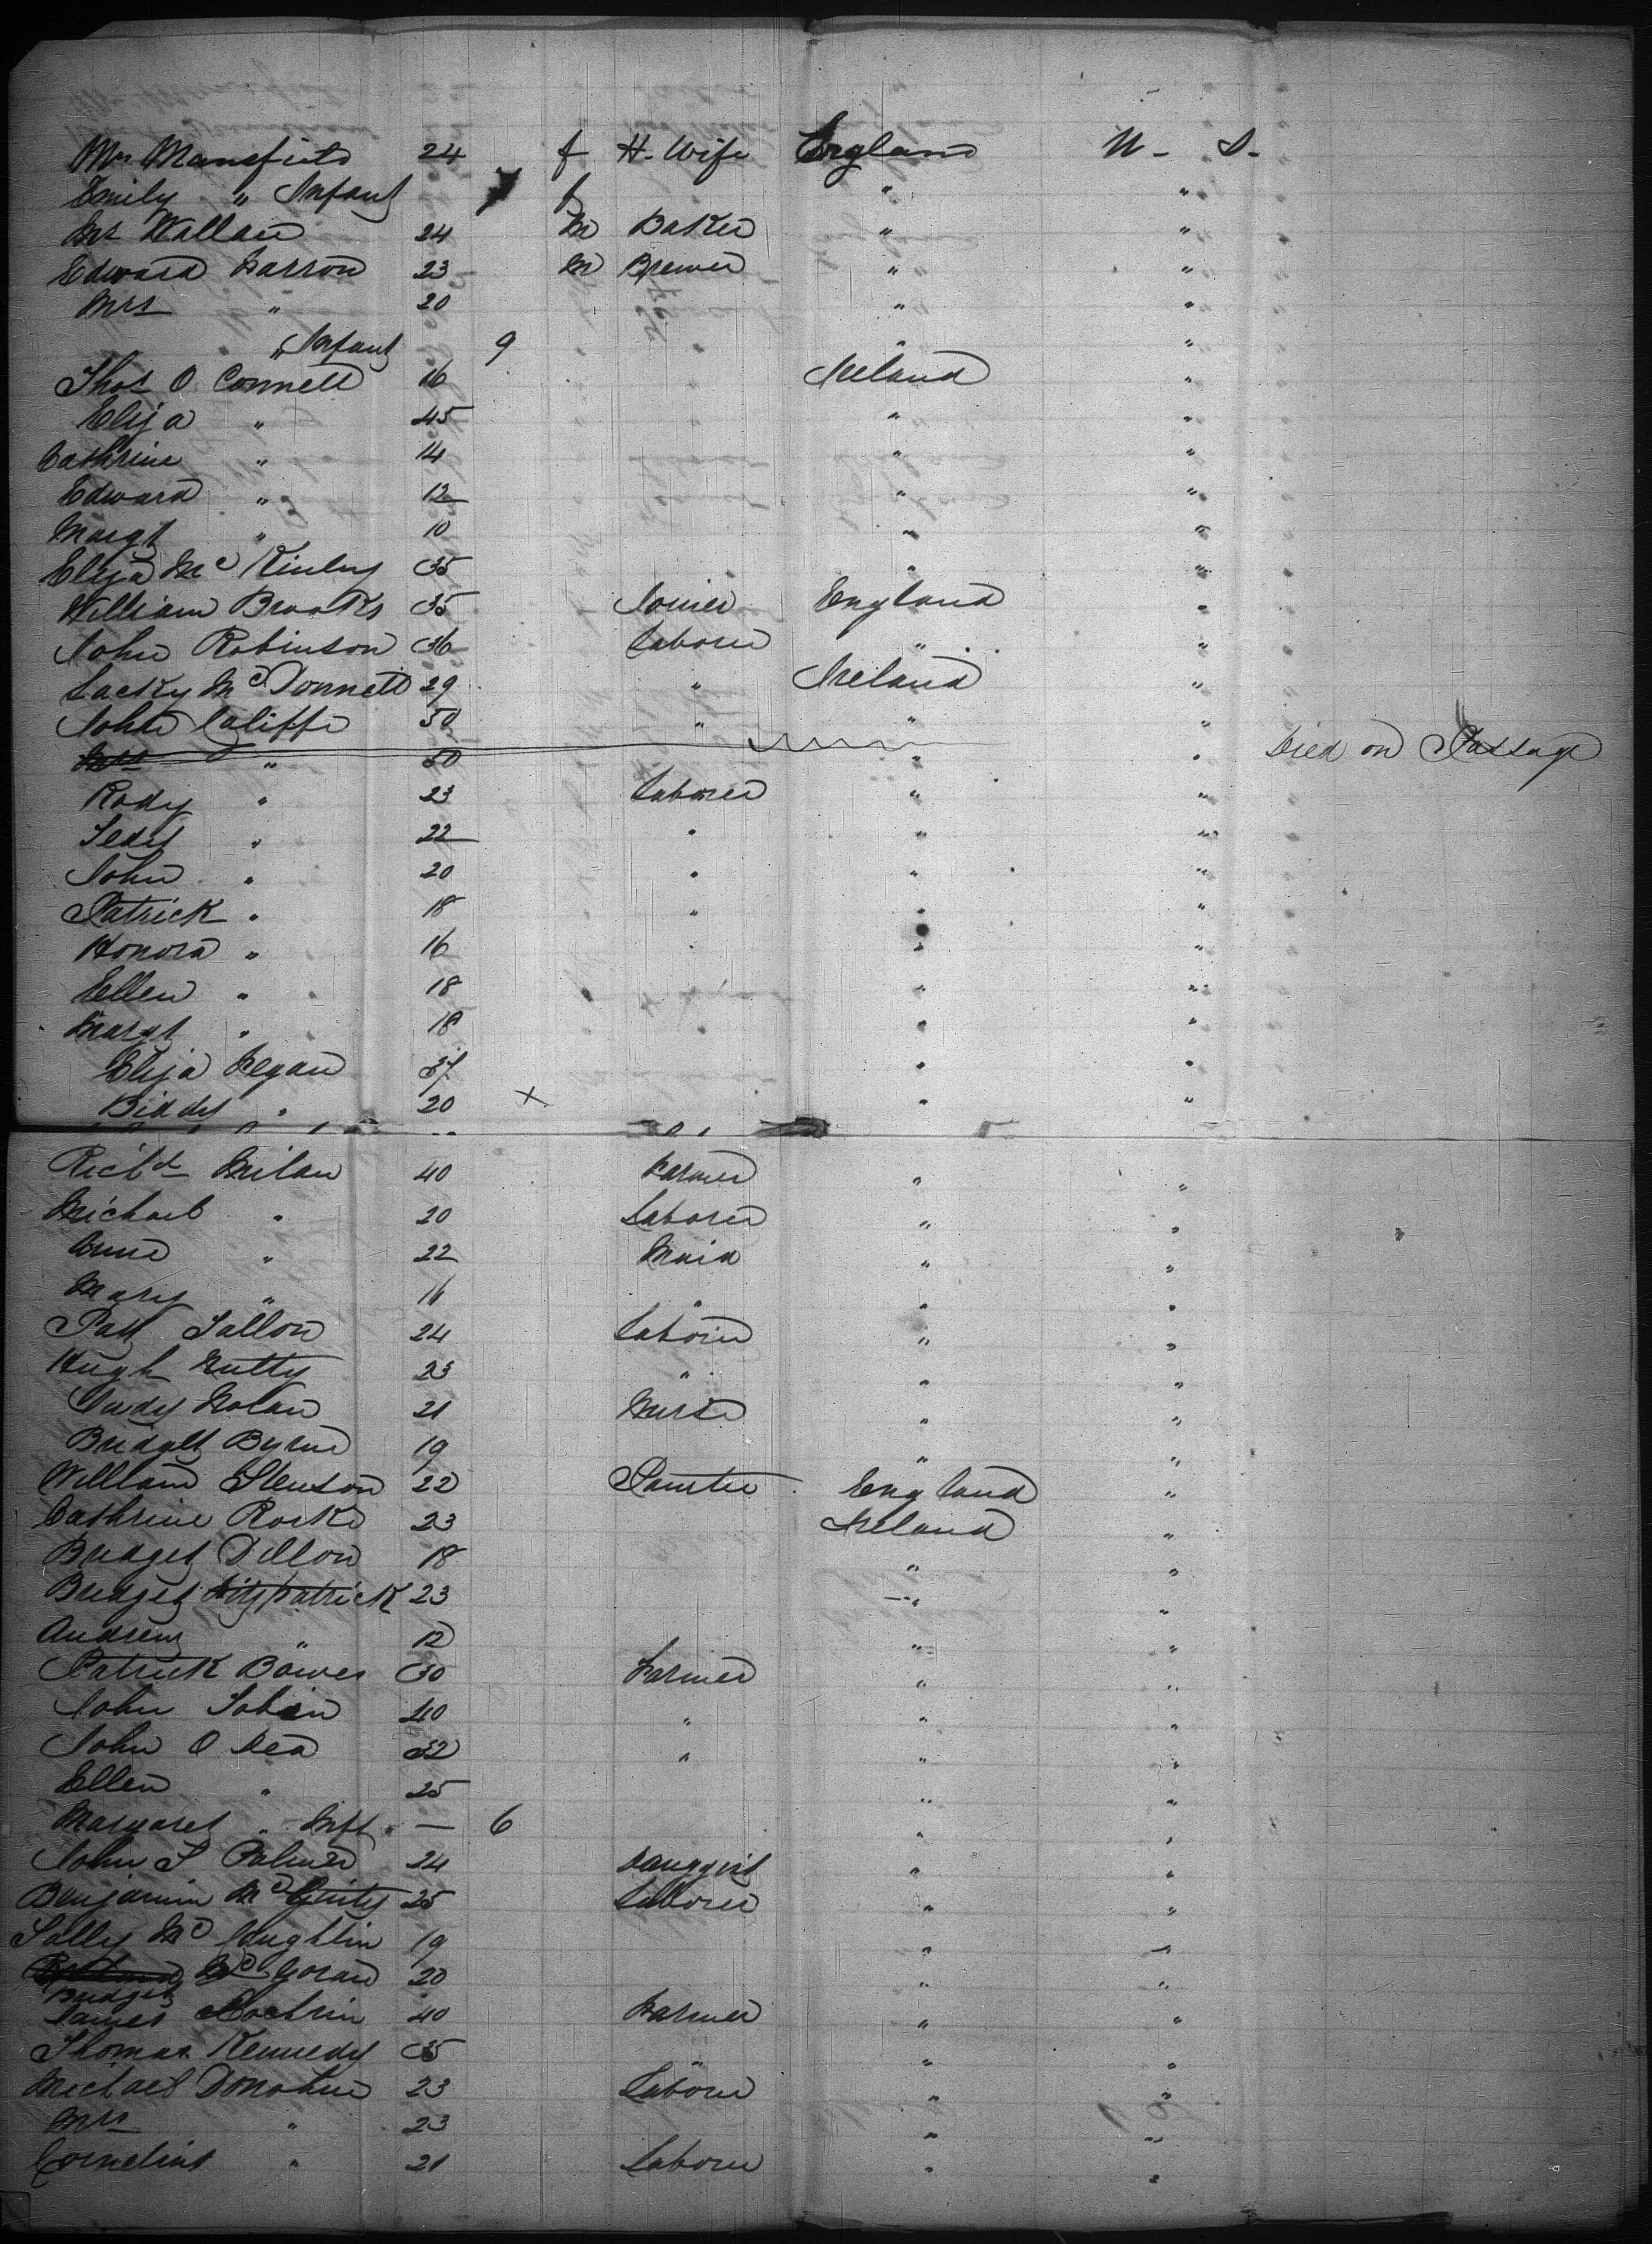 Mrs Mansfield 24 f H. Wife England U- S-
Emily " Infant 7 f " "
Mr Wallace 24 M Baker " "
Edward Barron 23 M Brewer " "
Mrs " 20 " "
" Infant 9 " "
Thos O Connell 16 Ireland "
Eliza " 45 " "
Cathrine " 14 " "
Edward " 12 " "
Margt " 10 " "
Eliza Mc Kinley 35 " "
William Brooks 35 Joiner England "
John Robinson 36 Laborer " "
Lacky Mc Donnell 29 " Ireland "
John Califfe 50 " " "
Mrs " 50 " " Died on Passage
Rody " 23 Laborer " "
" 22 " " "
John " 20 " " "
Patrick " 18 " " "
Honora " 16 " "
Ellen " 18 " "
Margt " 18 " "
Eliza Regan 37 " "
Biddy " 20 x " "
Richd Milan 40 Farmer " "
Michael " 20 Laborer " "
Anne " 22 Maid " "
Mary " 16 " " "
Pat Fallon 24 Laborer " "
Hugh Nutty 23 " " "
Judy Nolan 21 Nurse " "
Bridget Byrne 19 " "
William Stenson 22 Painter England "
Cathrine Rorke 23 Ireland "
Bridget Dillon 18 " "
Bridget Fitzpatrick 23 " "
Andrew " 12 " "
Patrick Bower 30 Farmer " "
John Tobin 40 " " "
John O Dea 32 " " "
Ellen " 25 " "
Margaret " Inft " — 6 " "
John S Palmer 24 " "
Benjamin Mc Ginty 25 Laborer " "
Sally Mc Loughlin 19 " "
Mc Goran 20 " "
Bridget
James 40 Farmer " "
Thomas Kennedy 35 " " "
Michael Donohue 23 Laborer " "
Mrs " 23 " "
Cornelius " 21 Laborer " "